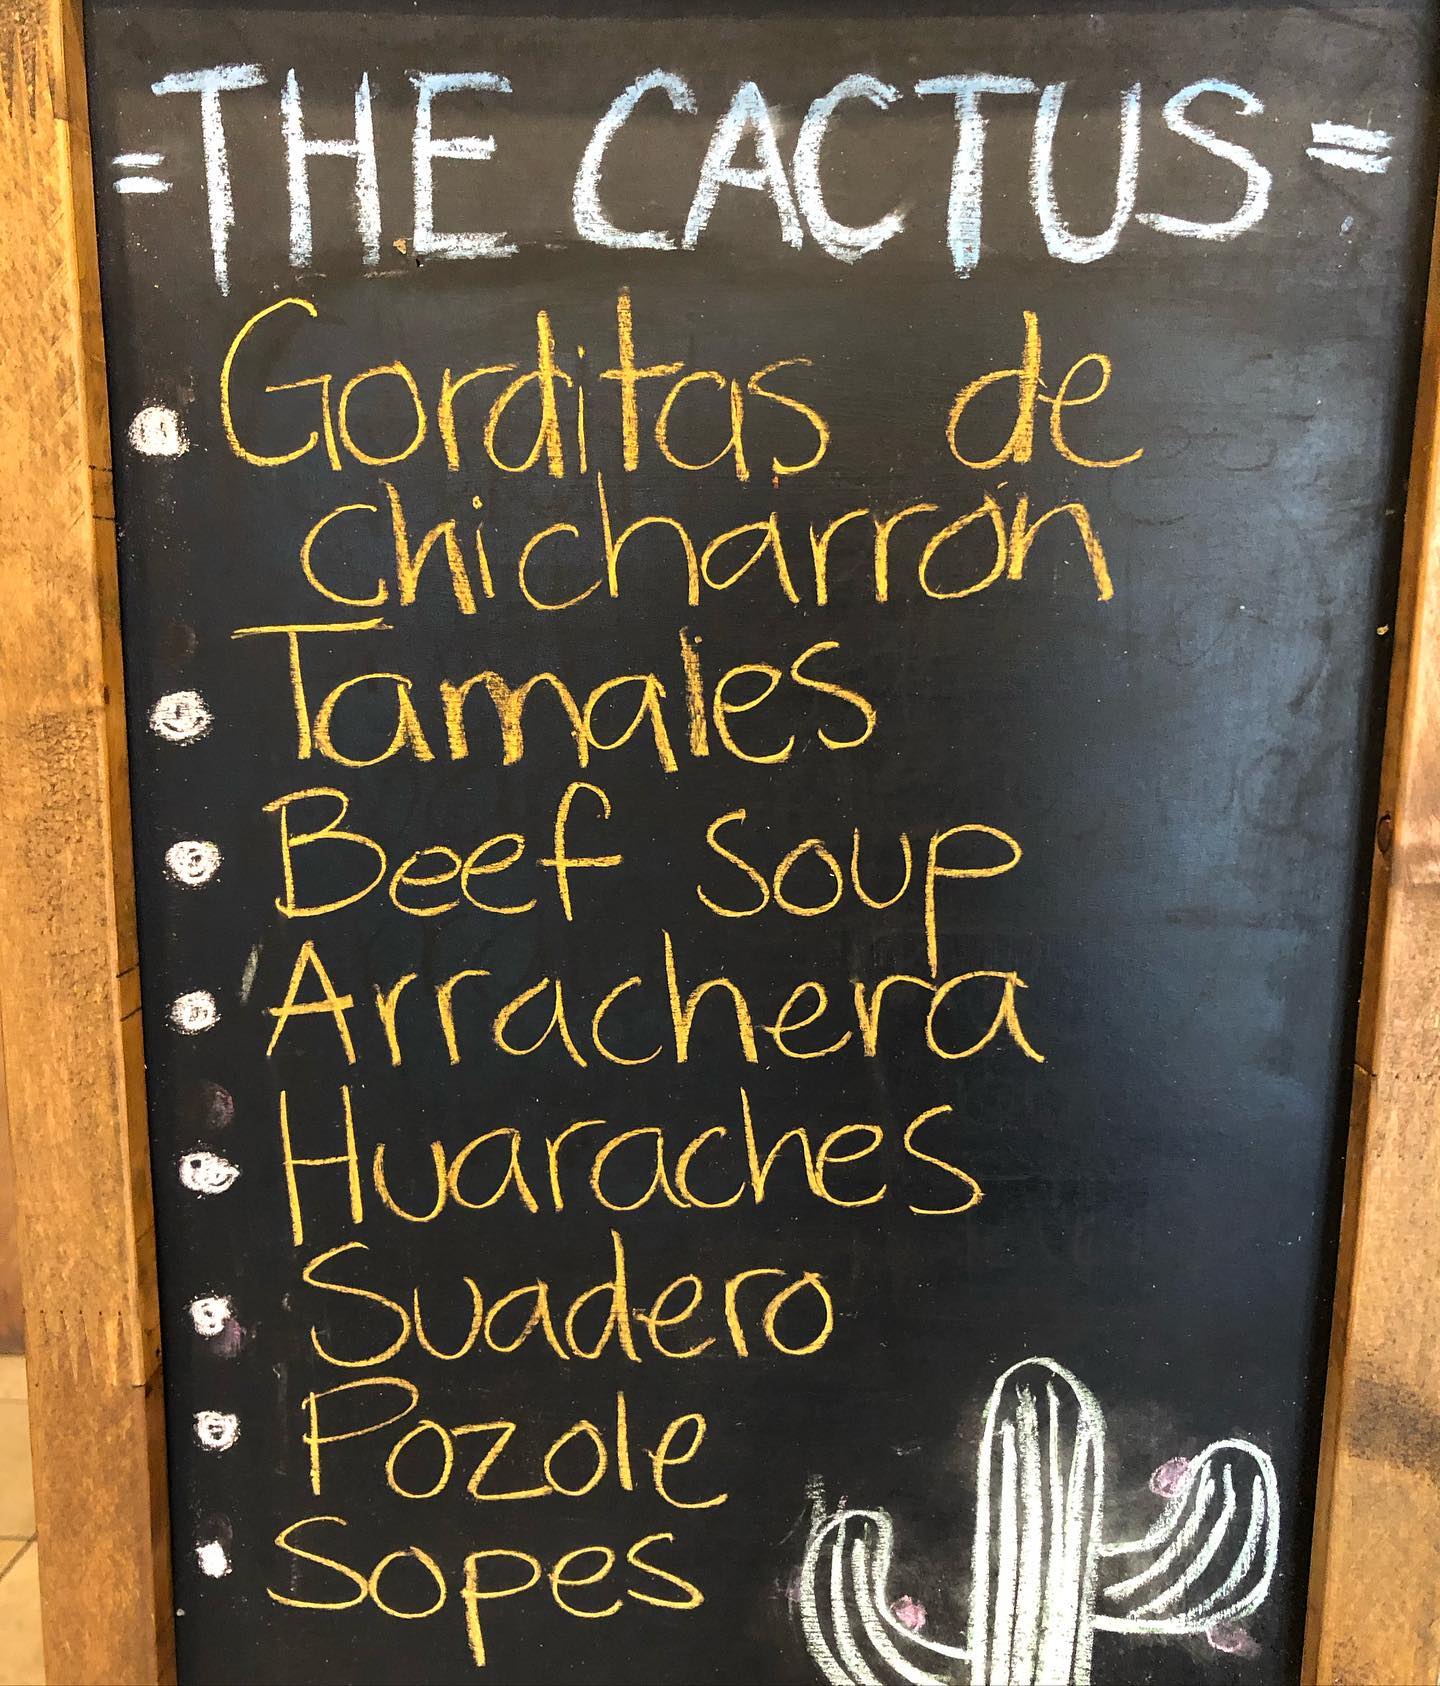 =THE CACTUS=
Gorditas de
chicharrón
Tamales
Beef soup
Arrachera
Huaraches
Suadero
Pozole
Sopes